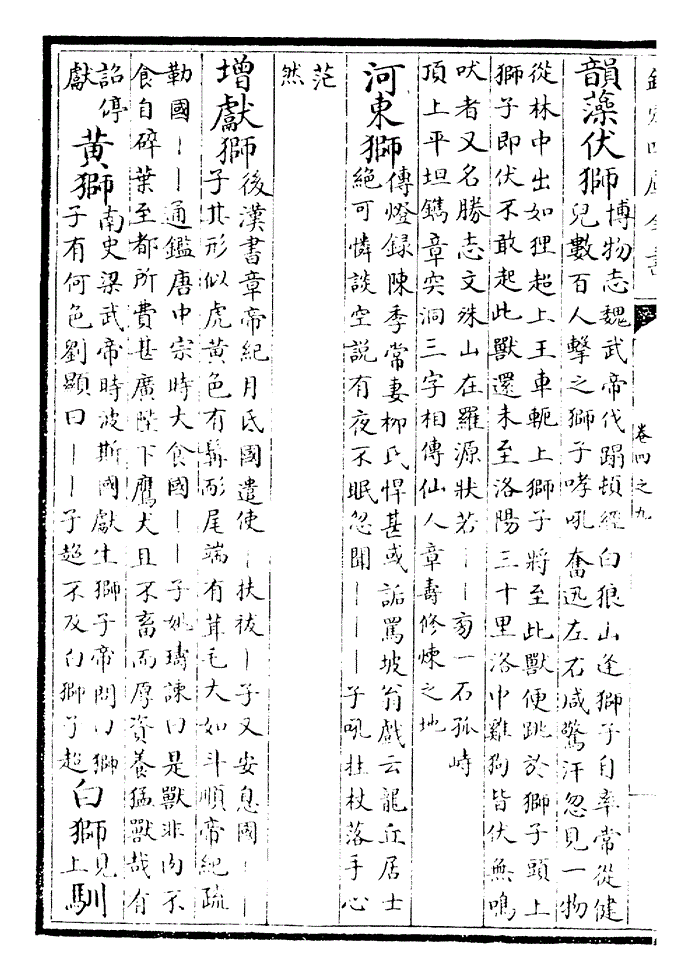 欽定四庫全書
卷四之九
韻藻伏獅
博物志魏武帝代蹋頓經白狼山逢獅子自率常從健
兒數百人擊之獅子哮吼奮迅左右咸驚汗忽見一物
從林中出如狸超上王車軛上獅子將至此獸便跳於獅子頭上
獅子即伏不敢起此獸還未至洛陽三十里洛中雞狗皆伏無鳴
吠者又名勝志文殊山在羅源狀若丨丨旁一石孤峙
頂上平坦鐫章突洞三字相傳仙人章壽修煉之地
河東獅
傳燈録陳季常妻柳氏悍甚或詬罵坡翁戲云龍丘居士
絕可憐談空說有夜不眠忽聞丨丨丨子吼拄杖落手心
茫
然
增獻獅
後漢書章帝紀月氏國遣使丨扶祓丨子又安息國丨丨
子其形似虎黃色有髯耏尾端有茸毛大如斗順帝紀疏
勒國丨丨通鑑唐中宗時大食國丨丨子姚璹諫曰是獸非肉不
食自碎葉至都所費甚廣陛下鷹犬且不畜而厚資養猛獸哉有
詔停
獻
黃獅
南史梁武帝時波斯國獻生獅子帝問曰獅
子有何色劉顯曰丨丨子超不及白獅子超
白獅
見
上
馴